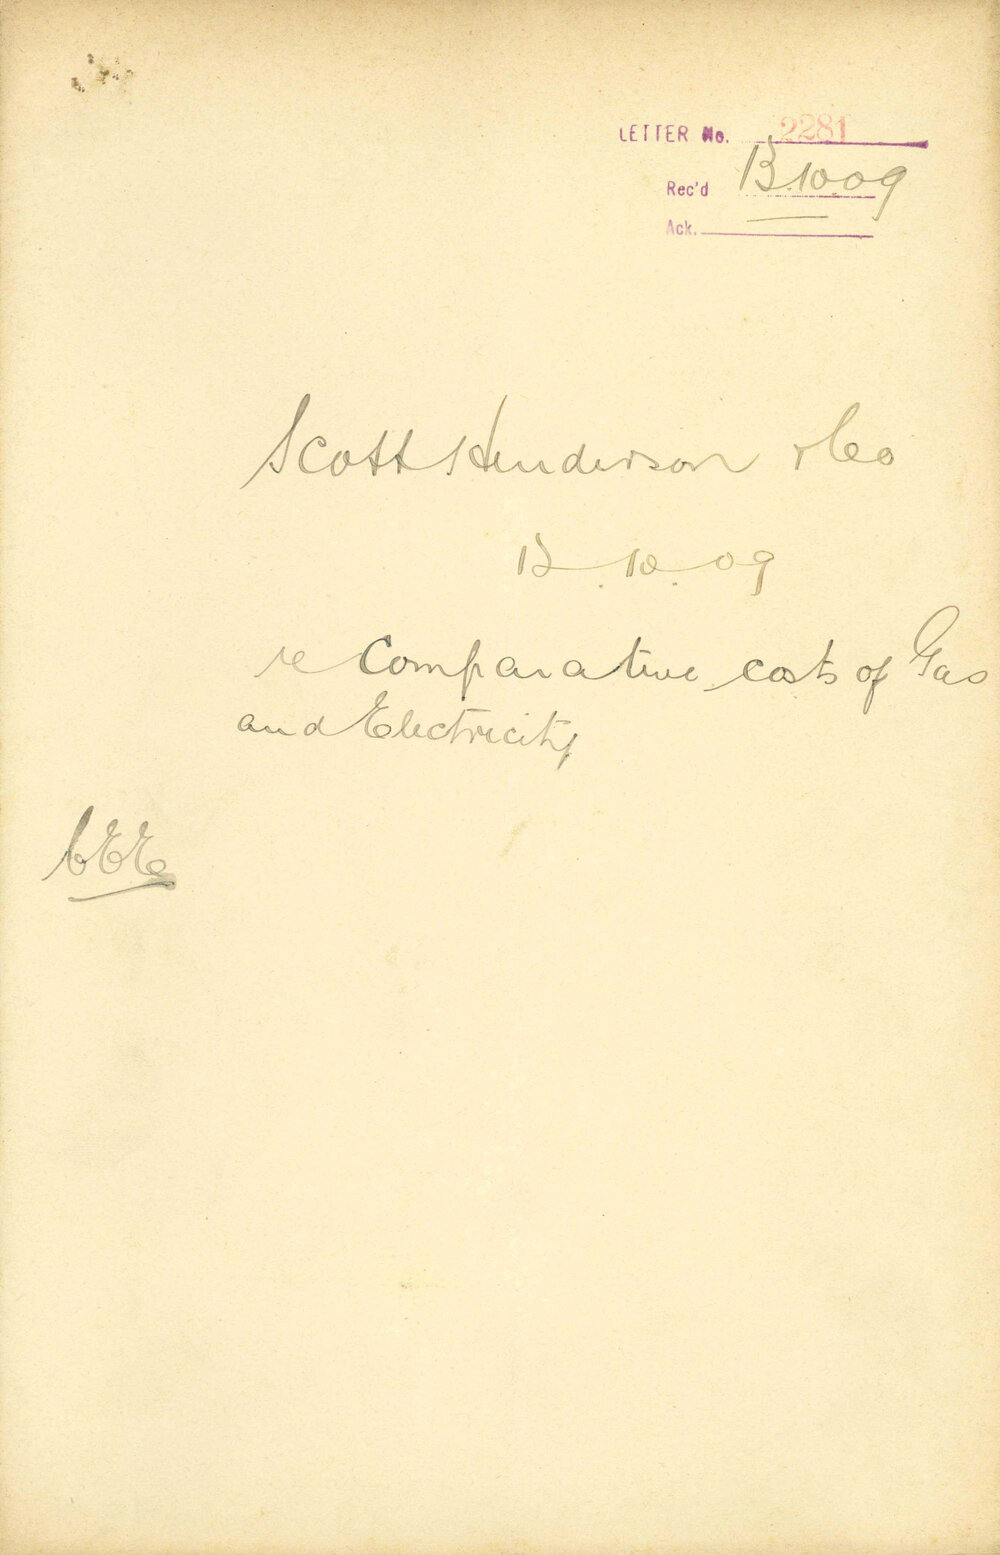 LETTER No. 2281
Rec'd 13.10.09
Ack.
Scott Henderson & Co
12.10.09
re Comparative costs of Gas
and Electricity
CEE